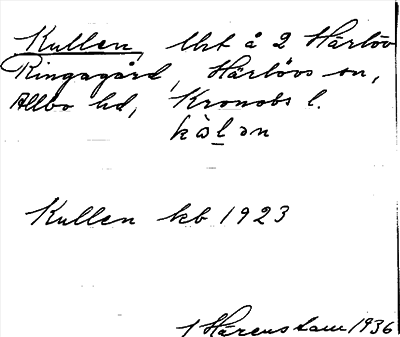 Kullen, lht å 2 Härlöv
Ringagård, Härlövs sn,
Allbo hd, Kronobs l.
kɷ̀lən
Kullen kb 1923
Härenstam 1936